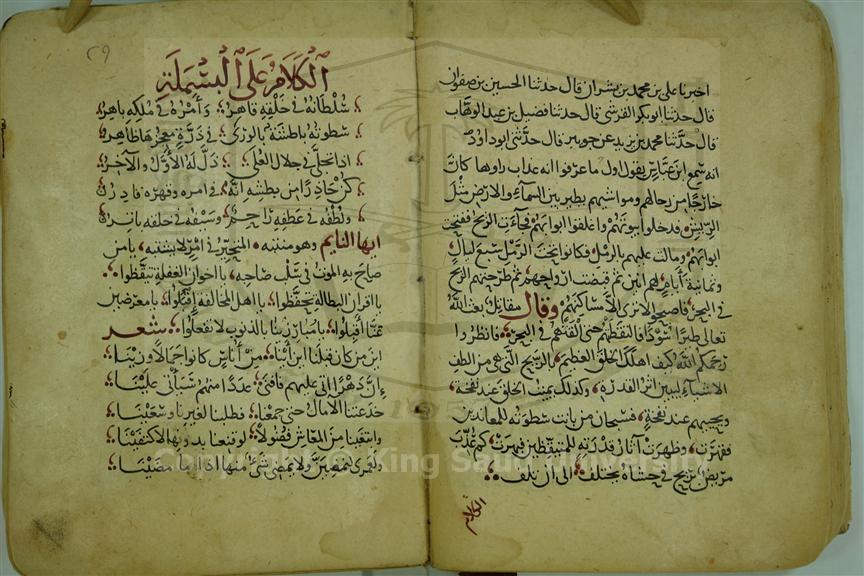 اخبرنا علي بن محمد بن بشران قال حدثنا الحسين بن صفوان
قال حدثنا ابو بكر القرشي قال حدثنا فضيل بن عبد الوهاب
قال حدثنا محمد بن يزيد عن جويبر قال حدثنى ابو داود
انه سمع ابن عباس يقول اول ما عرفوا انه عذاب راوها كان
خارجا من رحالهم ومواشيهم يطير بين السماء والارض مثل
الريش فدخلوا بيوتهم واغلقوا ابوابهم فجاءت الريح ففتحت
ابوابهم ومالت عليهم بالرمل فكانوا تحت الرمل سبع ليال
وثمانية أيام لهم انين ثم قبضت ارواحهم ثم طرحتهم الريح
في البحر فاصبحوا لا ترى الا مساكنهم وقال مقاتل بعث الله
تعالى طيرا سودا فالتقطتهم حتى القتهم في البحر فانظروا
رحمكم الله كيف اهلك الخلق العظيم بالريح التي هي من الطف
الاشياء ليبين اثر القدرة وكذلك يميت الخلق عند نفخة
ويحييهم عند نفخة فسبحان من بانت سطوته للمعاندين
فقهرت وظهرت آثار قدرته للمتيقظين فبهرت كم عذب
مريض بريح في حشاه يختلف الى ان تلف
الكلام
٢٩
الكلام على البسملة
سلطانه في خلقه قاهر وأمره في ملكه باهر
سطوته باطشة بالورى في ذرة معجزها ظاهر
اذا تجلى في جلال العلى ذل له الأول والآخر
كن حاذرا من بطشه انه في امره وقهره قادر
ولطفه في عطفه زاجر وسيفه في خلقه باتر
ايها النايم وهو منتبه المتحير في امر لا يشتبه يا من
صاح به الموت في سلب صاحبه يا اخوان الغفلة تيقظوا
يا اقران البطالة تحفظوا يا اهل المخالفة اقبلوا يا معرضين
عنا أقبلوا يا مبارزين لنا بالذنوب لا تفعلوا شعر
اين من كان قبلنا اين أينا من أناس كانوا جمالا وزينا
إن دهرا اتى عليهم فافنى عددا منهم سيأتي علينا
خدعتنا الامال حتى جمعنا وطلبنا لغيرنا وسعينا
وابتغينا من المعاش فضولا لو قنعنا بدونها لاكتفينا
ولعمري لنمضين ولا يمضي شئ منها اذا ما مضينا